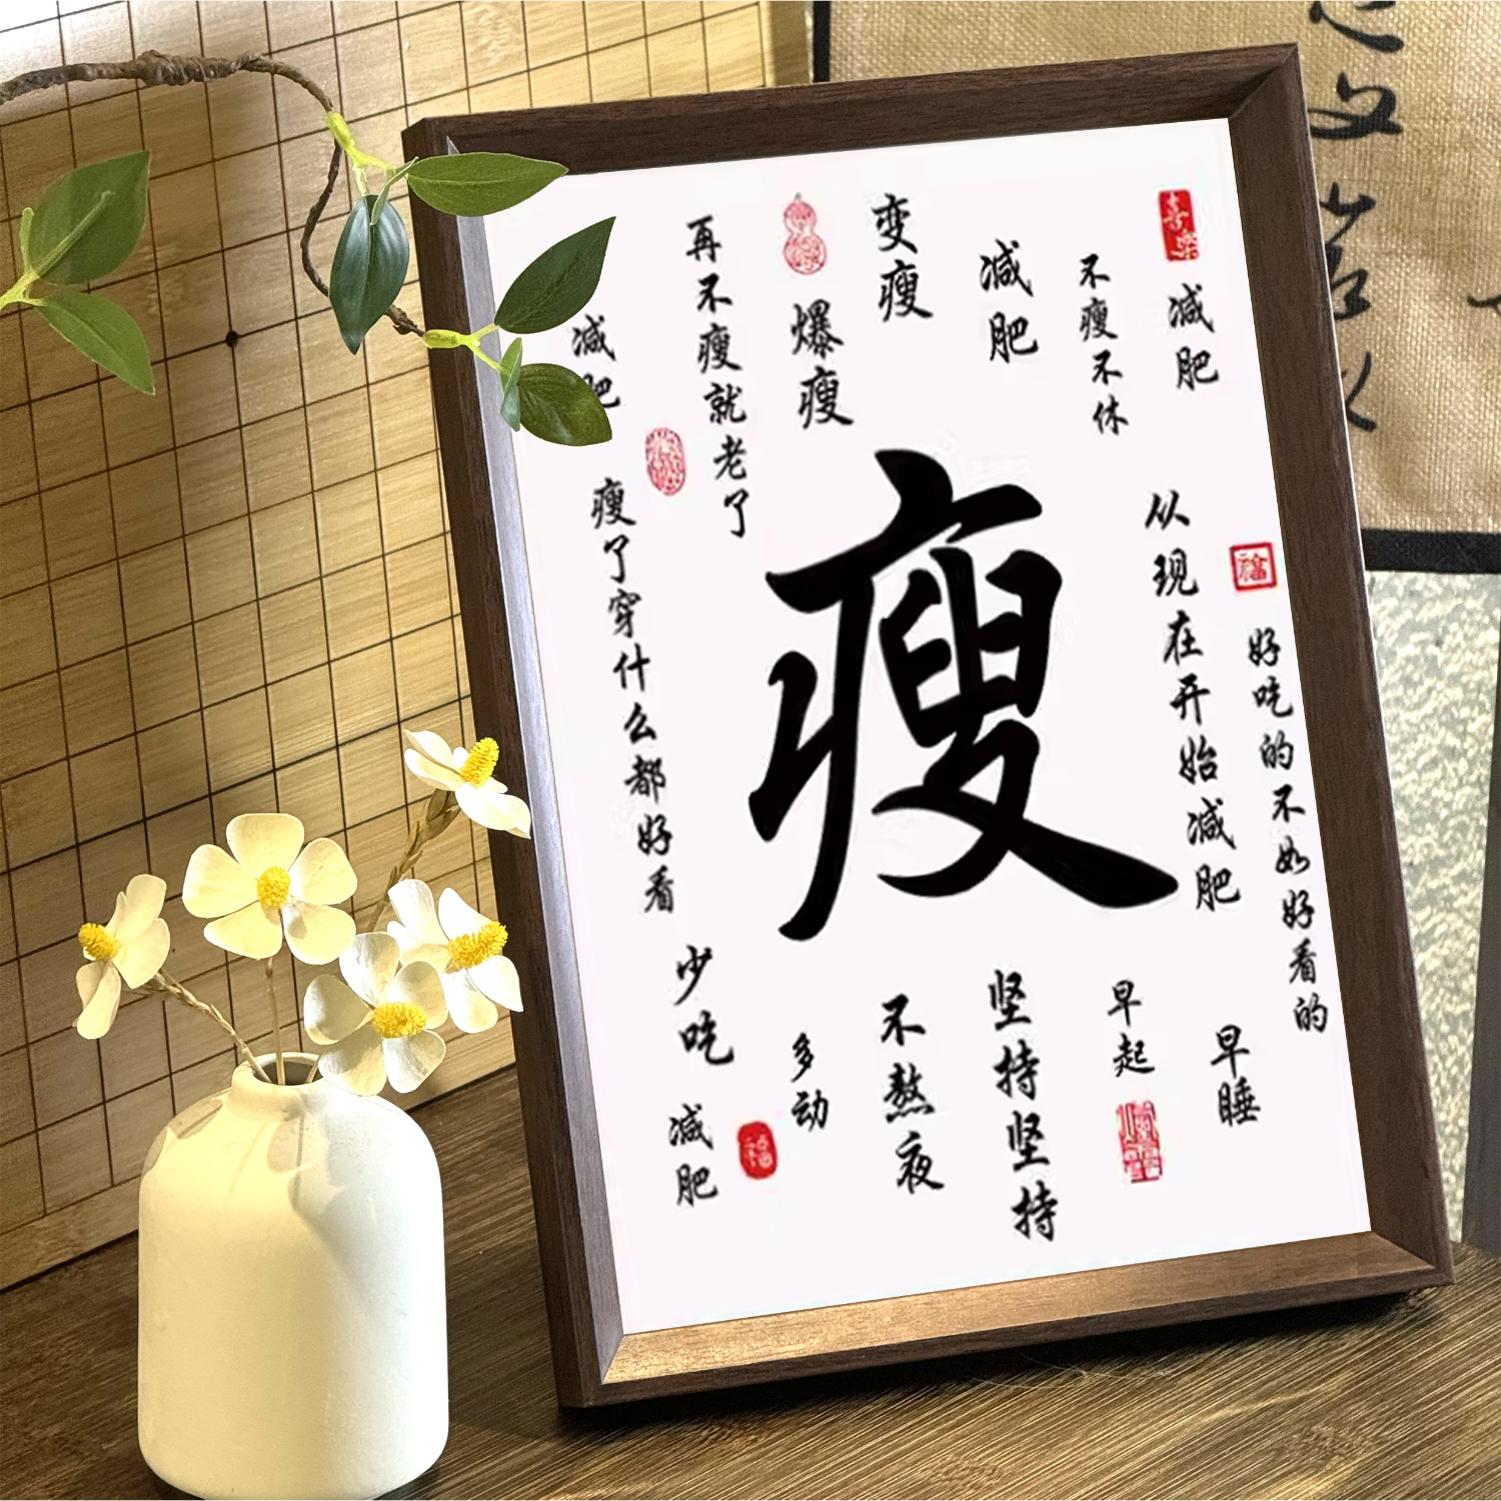 减肥
不瘦不休
减肥
变瘦
爆瘦
再不瘦就老了
减肥
福
好吃的不如好看的
从现在开始减肥
瘦
瘦了穿什么都好看
早睡
早起
坚持坚持
不熬夜
多动
福
少吃
减肥